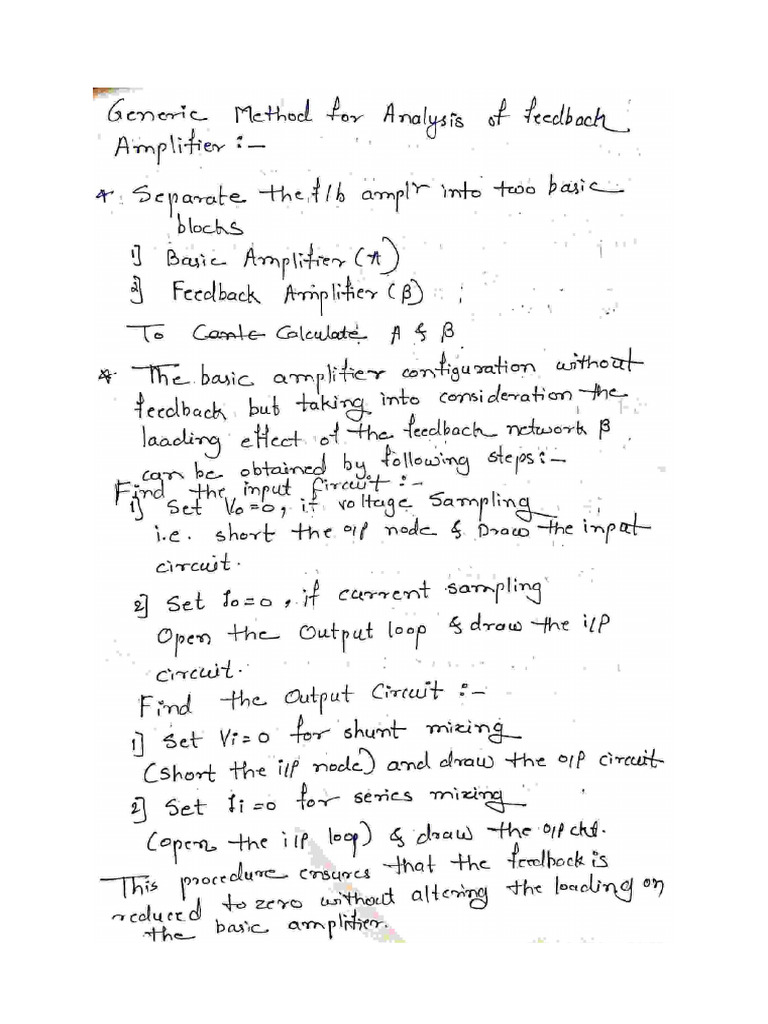 Generic Method for Analysis of feedback
Amplifier :-
* Separate the f/b amplr into two basic
blocks
1] Basic Amplifier (A)
2] Feedback Amplifier (β)
To Conte Calculate A & β
* The basic amplifier configuration without
feedback but taking into consideration the
loading effect of the feedback network β
can be obtained by following steps :-
Find the input fircuit :-
1) Set Vo = 0, if voltage sampling
i.e. short the o/p node & Draw the input
circuit.
2] Set Io = 0, if current sampling
Open the Output loop & draw the i/p
circuit.
Find the Output Circuit :-
1] Set Vi = 0 for shunt mixing
(short the i/p node) and draw the o/p circuit
2] Set Ii = 0 for series mixing
(open the i/p loop) & draw the o/p ckt.
This procedure ensures that the feedback is
reduced to zero without altering the loading on
the basic amplifier.